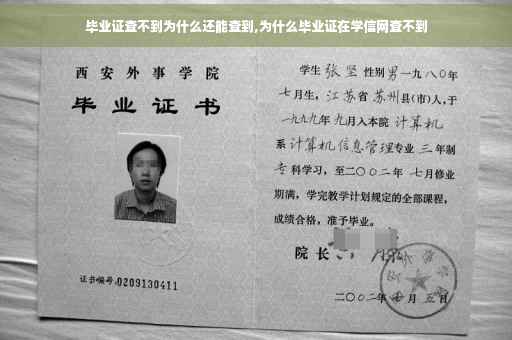 毕业证查不到为什么还能查到,为什么毕业证在学信网查不到
西安外事学院
毕业证书
证书编号:0209130411
学生 张坚 性别 男 一九八〇年
七月生, 江苏省 苏州 县(市)人,于
一九九九年 九月入本院 计算机
系 计算机信息管理 专业 三 年制
专科学习, 至二〇〇二年 七月修业
期满, 学完教学计划规定的全部课程,
成绩合格, 准予毕业。
院长
二〇〇二年 月 五日